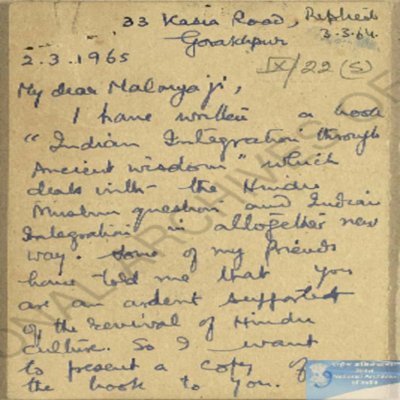 33 Kasia Road, Replied
Gorakhpur 3.3.64.
2.3.1965 IX/22 (S)
My dear Malaviyaji,
I have written a book
"Indian Integration through
Ancient wisdom" which
deals with the Hindu
Muslim question and Indian
Integration in altogether new
way. Some of my friends
have told me that you
are an ardent supporter
of the revival of Hindu
culture. So I want
to present a copy of
the book to you.